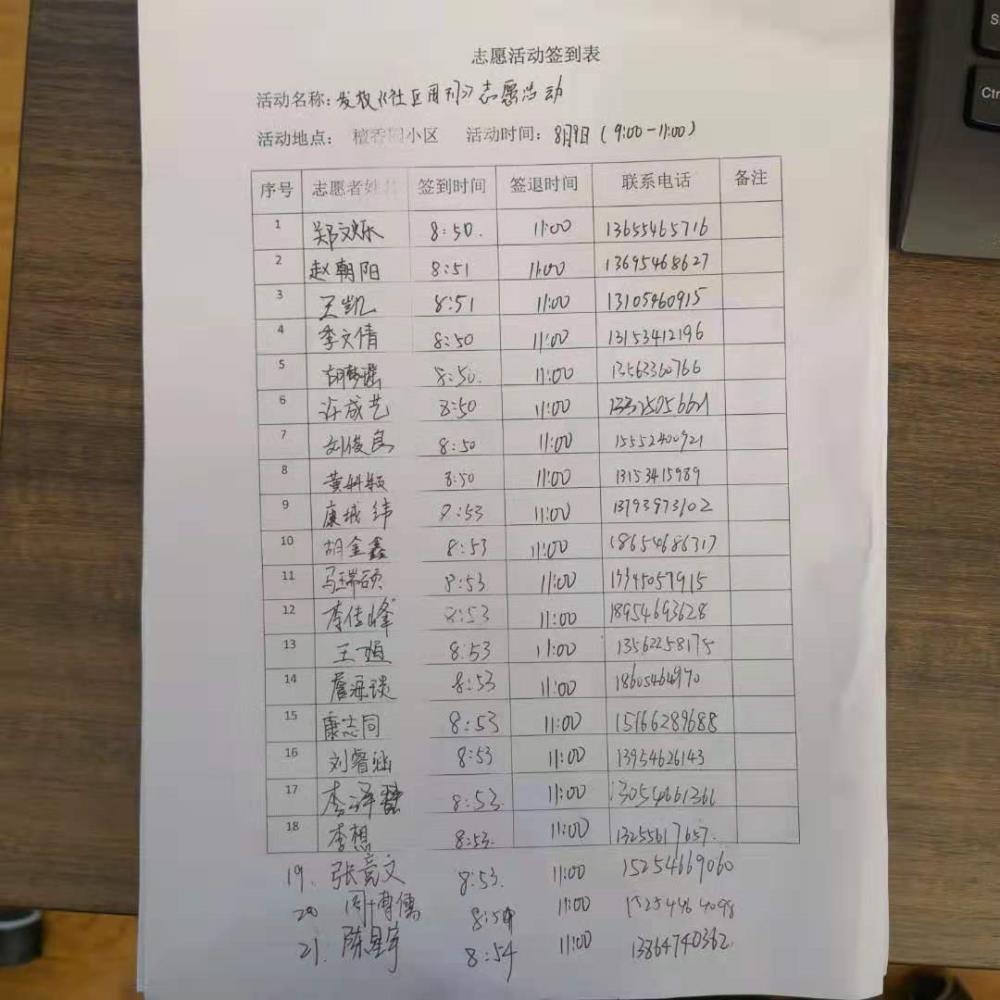 志愿活动签到表
活动名称：发放《社区周刊》志愿活动
活动地点： 檀香园小区 活动时间：8月9日（9:00-11:00）
序号 志愿者姓名 签到时间 签退时间 联系电话 备注
1 郑文烁 8:50. 11:00 13655465716
2 赵朝阳 8:51 11:00 13695468627
3 王凯 8:51 11:00 13105460915
4 季文倩 8:50 11:00 13153412196
5 胡梦瑶 8:50. 11:00 13562360766
6 许成艺 8:50 11:00
7 刘俊良 8:50 11:00 15552400921
8 黄 8:50 11:00 13153415989
9 康 纬 8:53 11:00 13793973102
10 胡金鑫 8:53 11:00 18654686317
11 马瑞硕 8:53 11:00
12 李佳峰 8:53 11:00 18954693628
13 王 8:53 11:00 13562258175
14 8:53 11:00 18605464970
15 康志同 8:53 11:00 15166289688
16 刘睿涵 8:53 11:00 13954626143
17 李泽 8:53. 11:00 13054661361
18 李想 8:53. 11:00 13255617657.
19. 张竞文 8:53. 11:00 15254669060
20 周博儒 11:00 15254644098
21. 陈星宇 8:54 11:00 13864740362.
S
Ctr